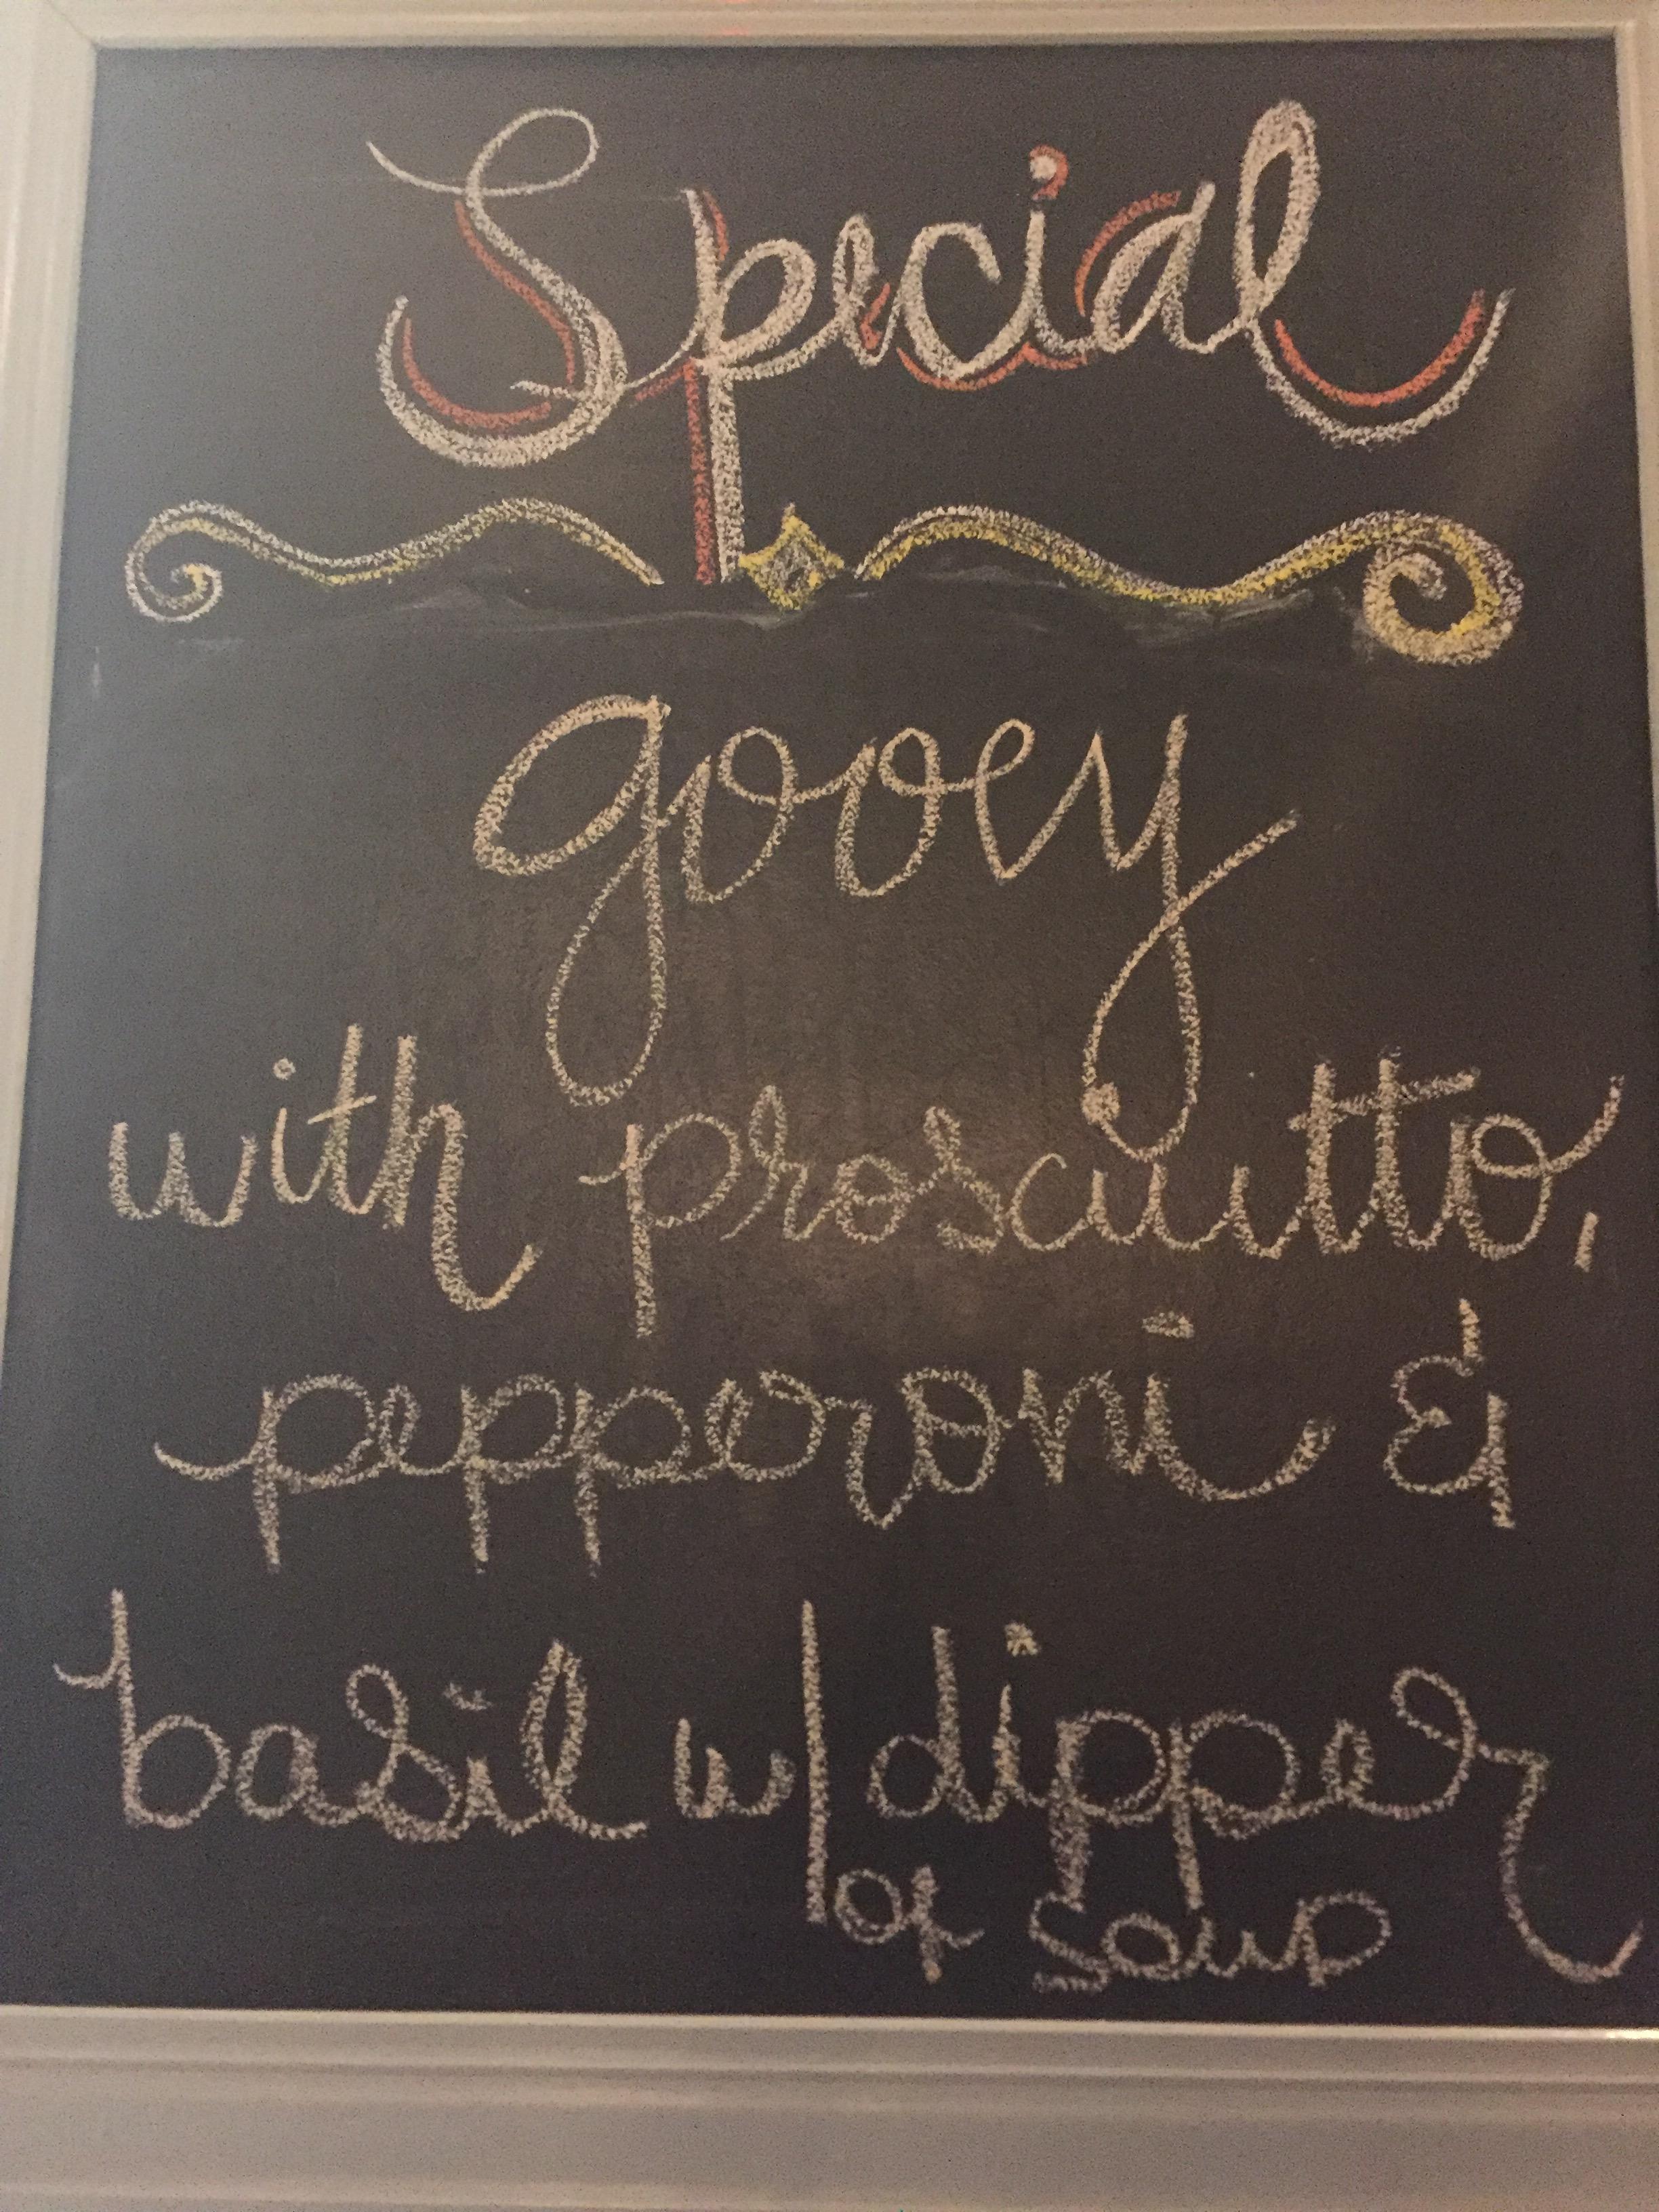 Special
gooey
with proscuitto,
pepperoni &
basil w/dipper
of soup